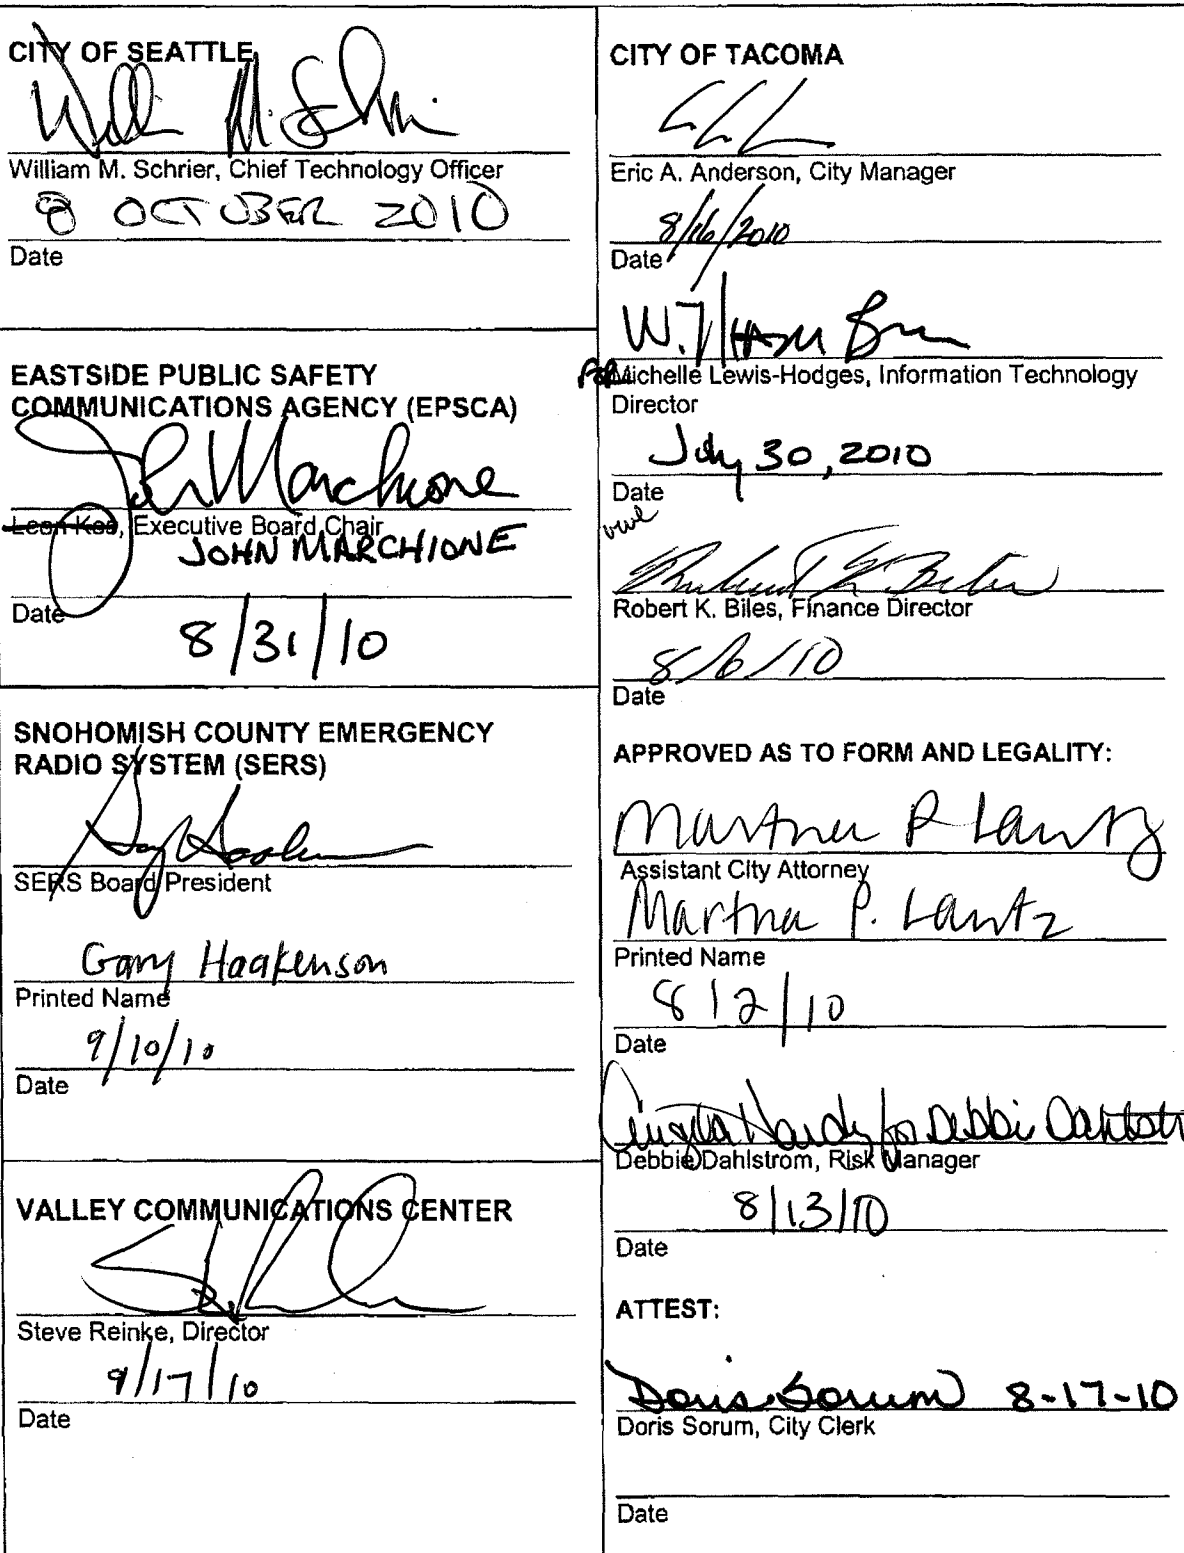 CITY OF SEATTLE
William M. Schrier, Chief Technology Officer
8 OCTOBER 2010
Date
EASTSIDE PUBLIC SAFETY
COMMUNICATIONS AGENCY (EPSCA)
John Marchione
Leon Kos, Executive Board Chair
JOHN MARCHIONE
Date
8/31/10
SNOHOMISH COUNTY EMERGENCY
RADIO SYSTEM (SERS)
SERS Board President
Gary Haakenson
Printed Name
9/10/10
Date
VALLEY COMMUNICATIONS CENTER
Steve Reinke, Director
9/17/10
Date
CITY OF TACOMA
Eric A. Anderson, City Manager
8/16/2010
Date
FOR Michelle Lewis-Hodges, Information Technology
Director
July 30, 2010
Date
Robert K. Biles, Finance Director
8/6/10
Date
APPROVED AS TO FORM AND LEGALITY:
Martha P Lantz
Assistant City Attorney
Martha P. Lantz
Printed Name
8/2/10
Date
Angela Hardy for Debbi Dahlstr
Debbie Dahlstrom, Risk Manager
8/13/10
Date
ATTEST:
Doris Sorum 8-17-10
Doris Sorum, City Clerk
Date